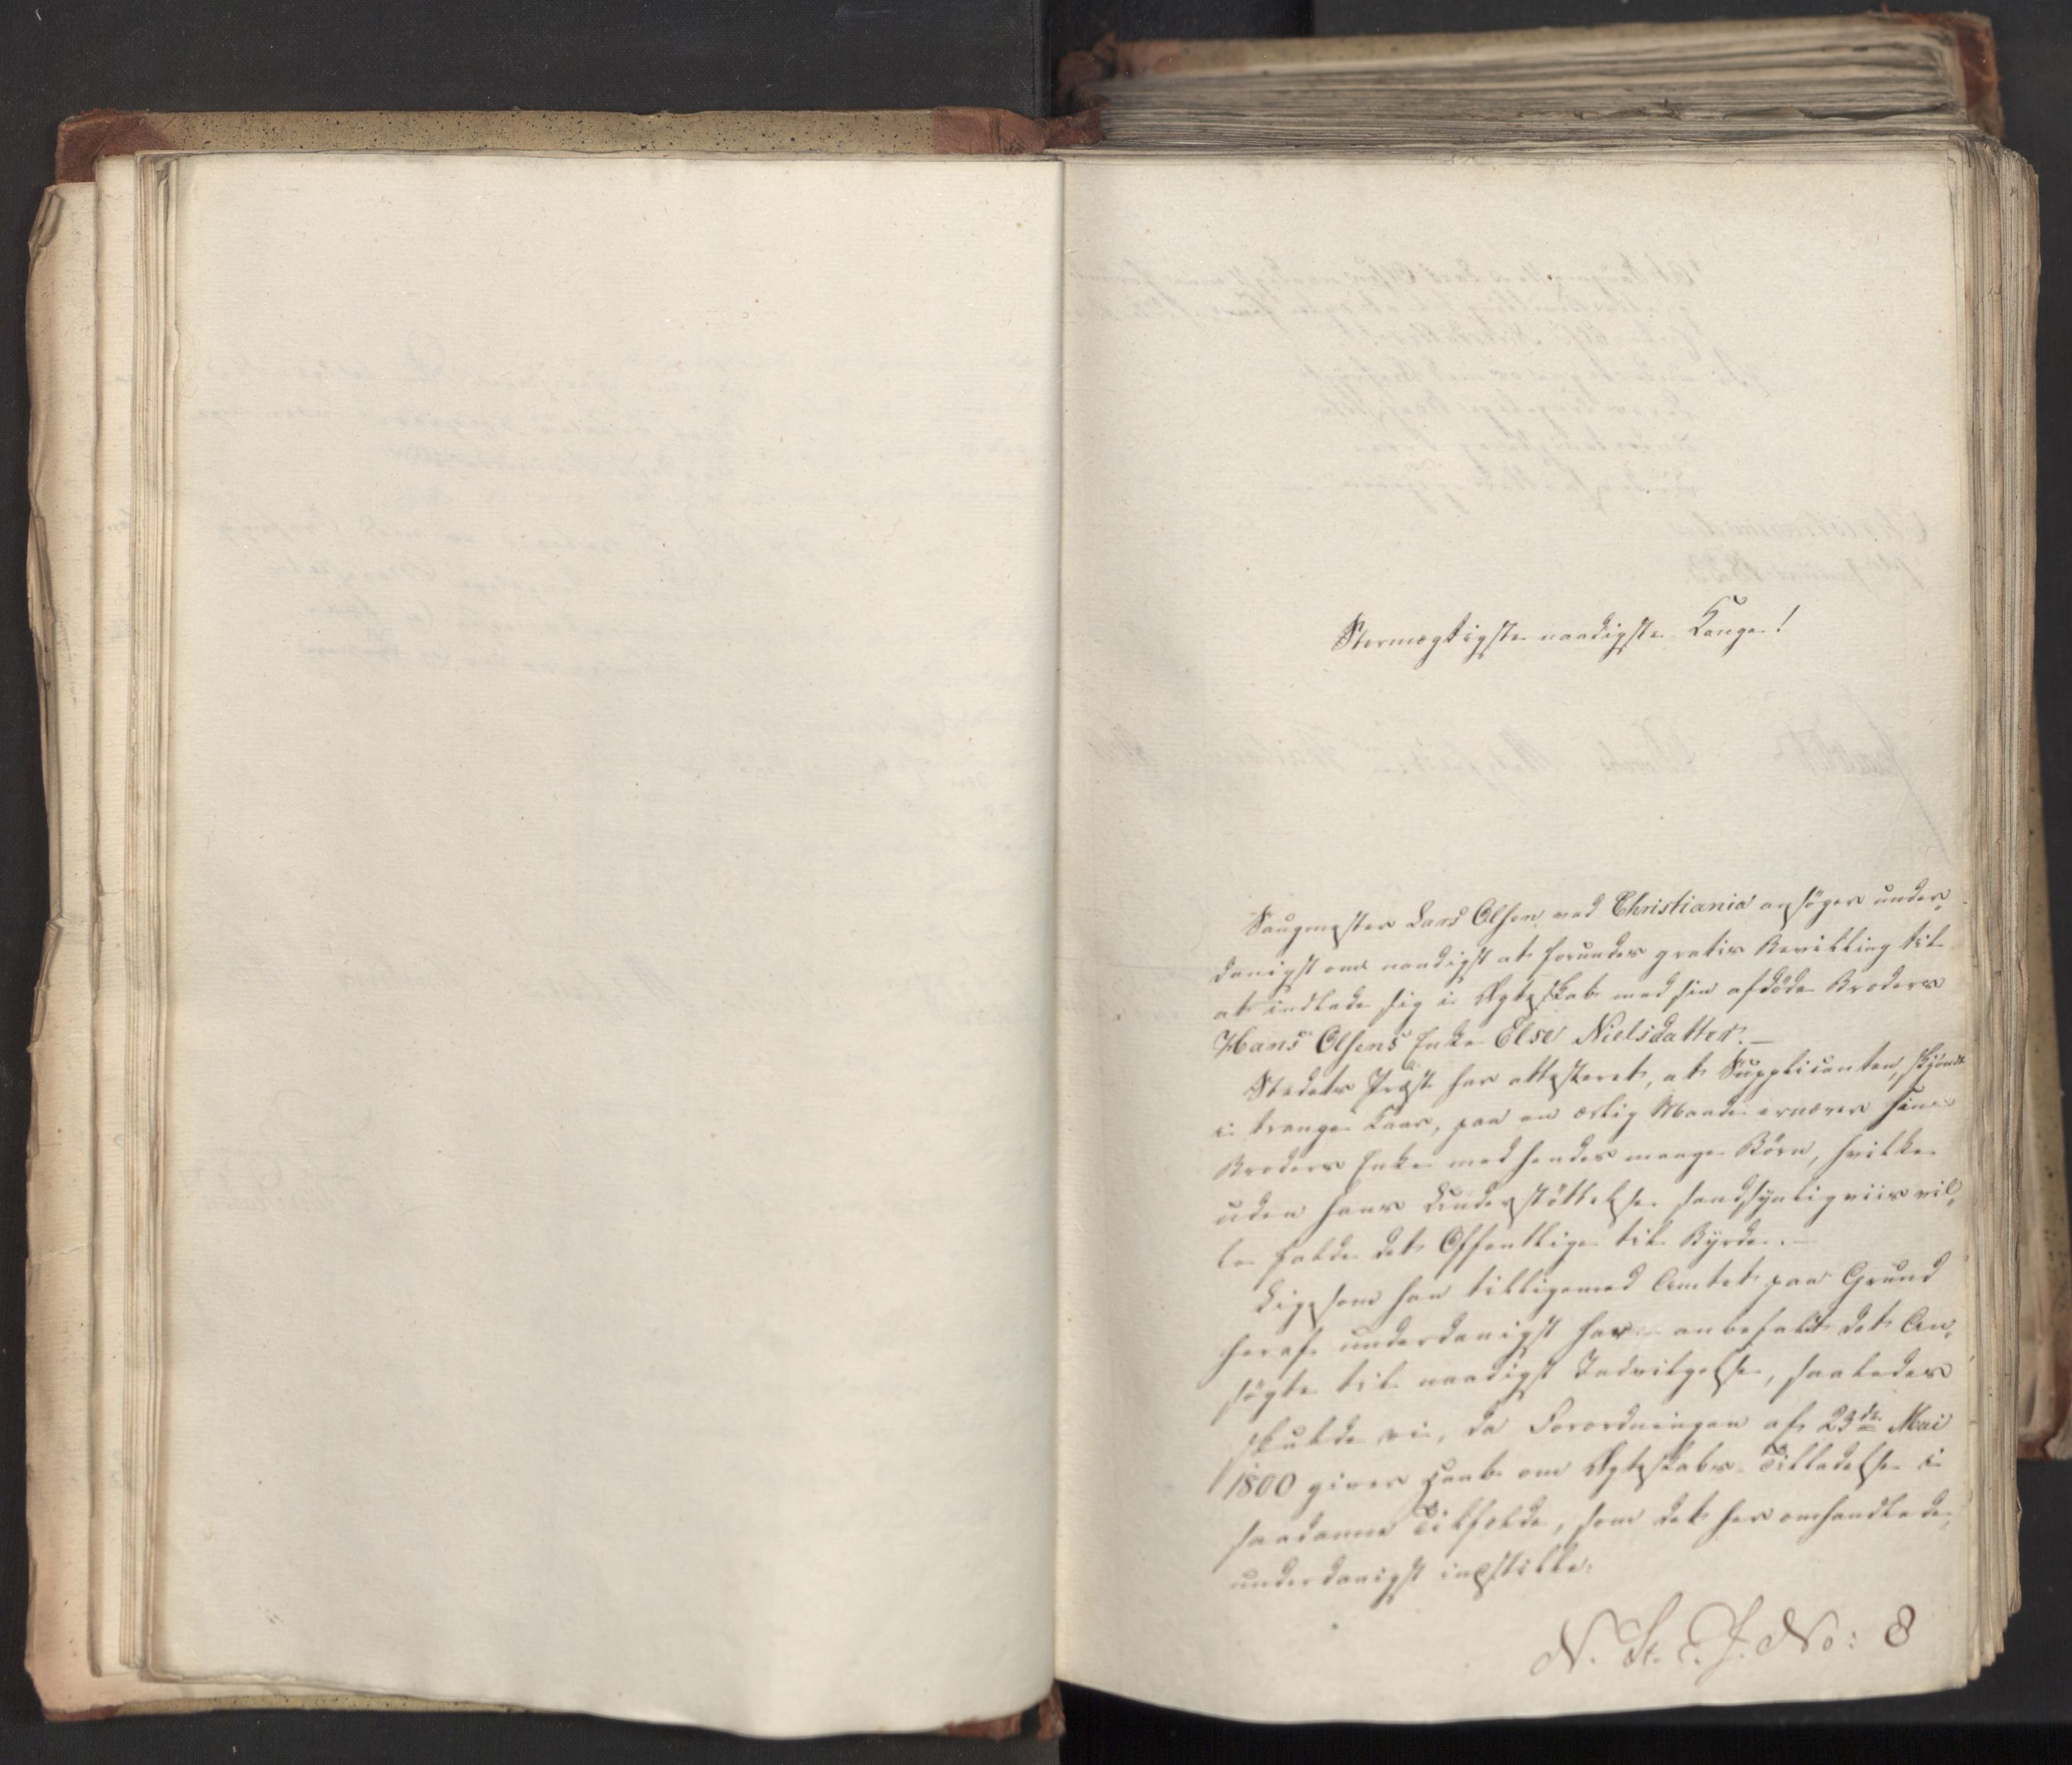 Stormægtigste naadigste Konge!
Saugmester Lars Olsen ved Christiania ansøger under-
danigst om naadigst at forundes gratis Bevilling til
at indlade sig i Ægteskab med sin afdøde Broders
Hans Olsens Enke Else Nielsdatter.—
Stedets Præst har attesteret, at Supplicanten, skjøndt
i trange Kaar, paa en ærlig Maade ernærer sin
Broders Enke med hendes mange Børn, hvilke
uden hans Understøttelse sandsynligviis vil-
le falde det Offentlige til Byrde.—
Ligesom han tilligemed Amtet paa Grund
heraf underdanigst har anbefalet det An-
søgte til naadigst Indvilgelse, saaledes
skulde vi, da Forordningen af 23de Mai
1800 giver Haab om Ægteskabs-Tilladelse i
saadanne Tilfælde, som det her omhandlede,
underdanigst indstille:
N. St. C. J. No: 8